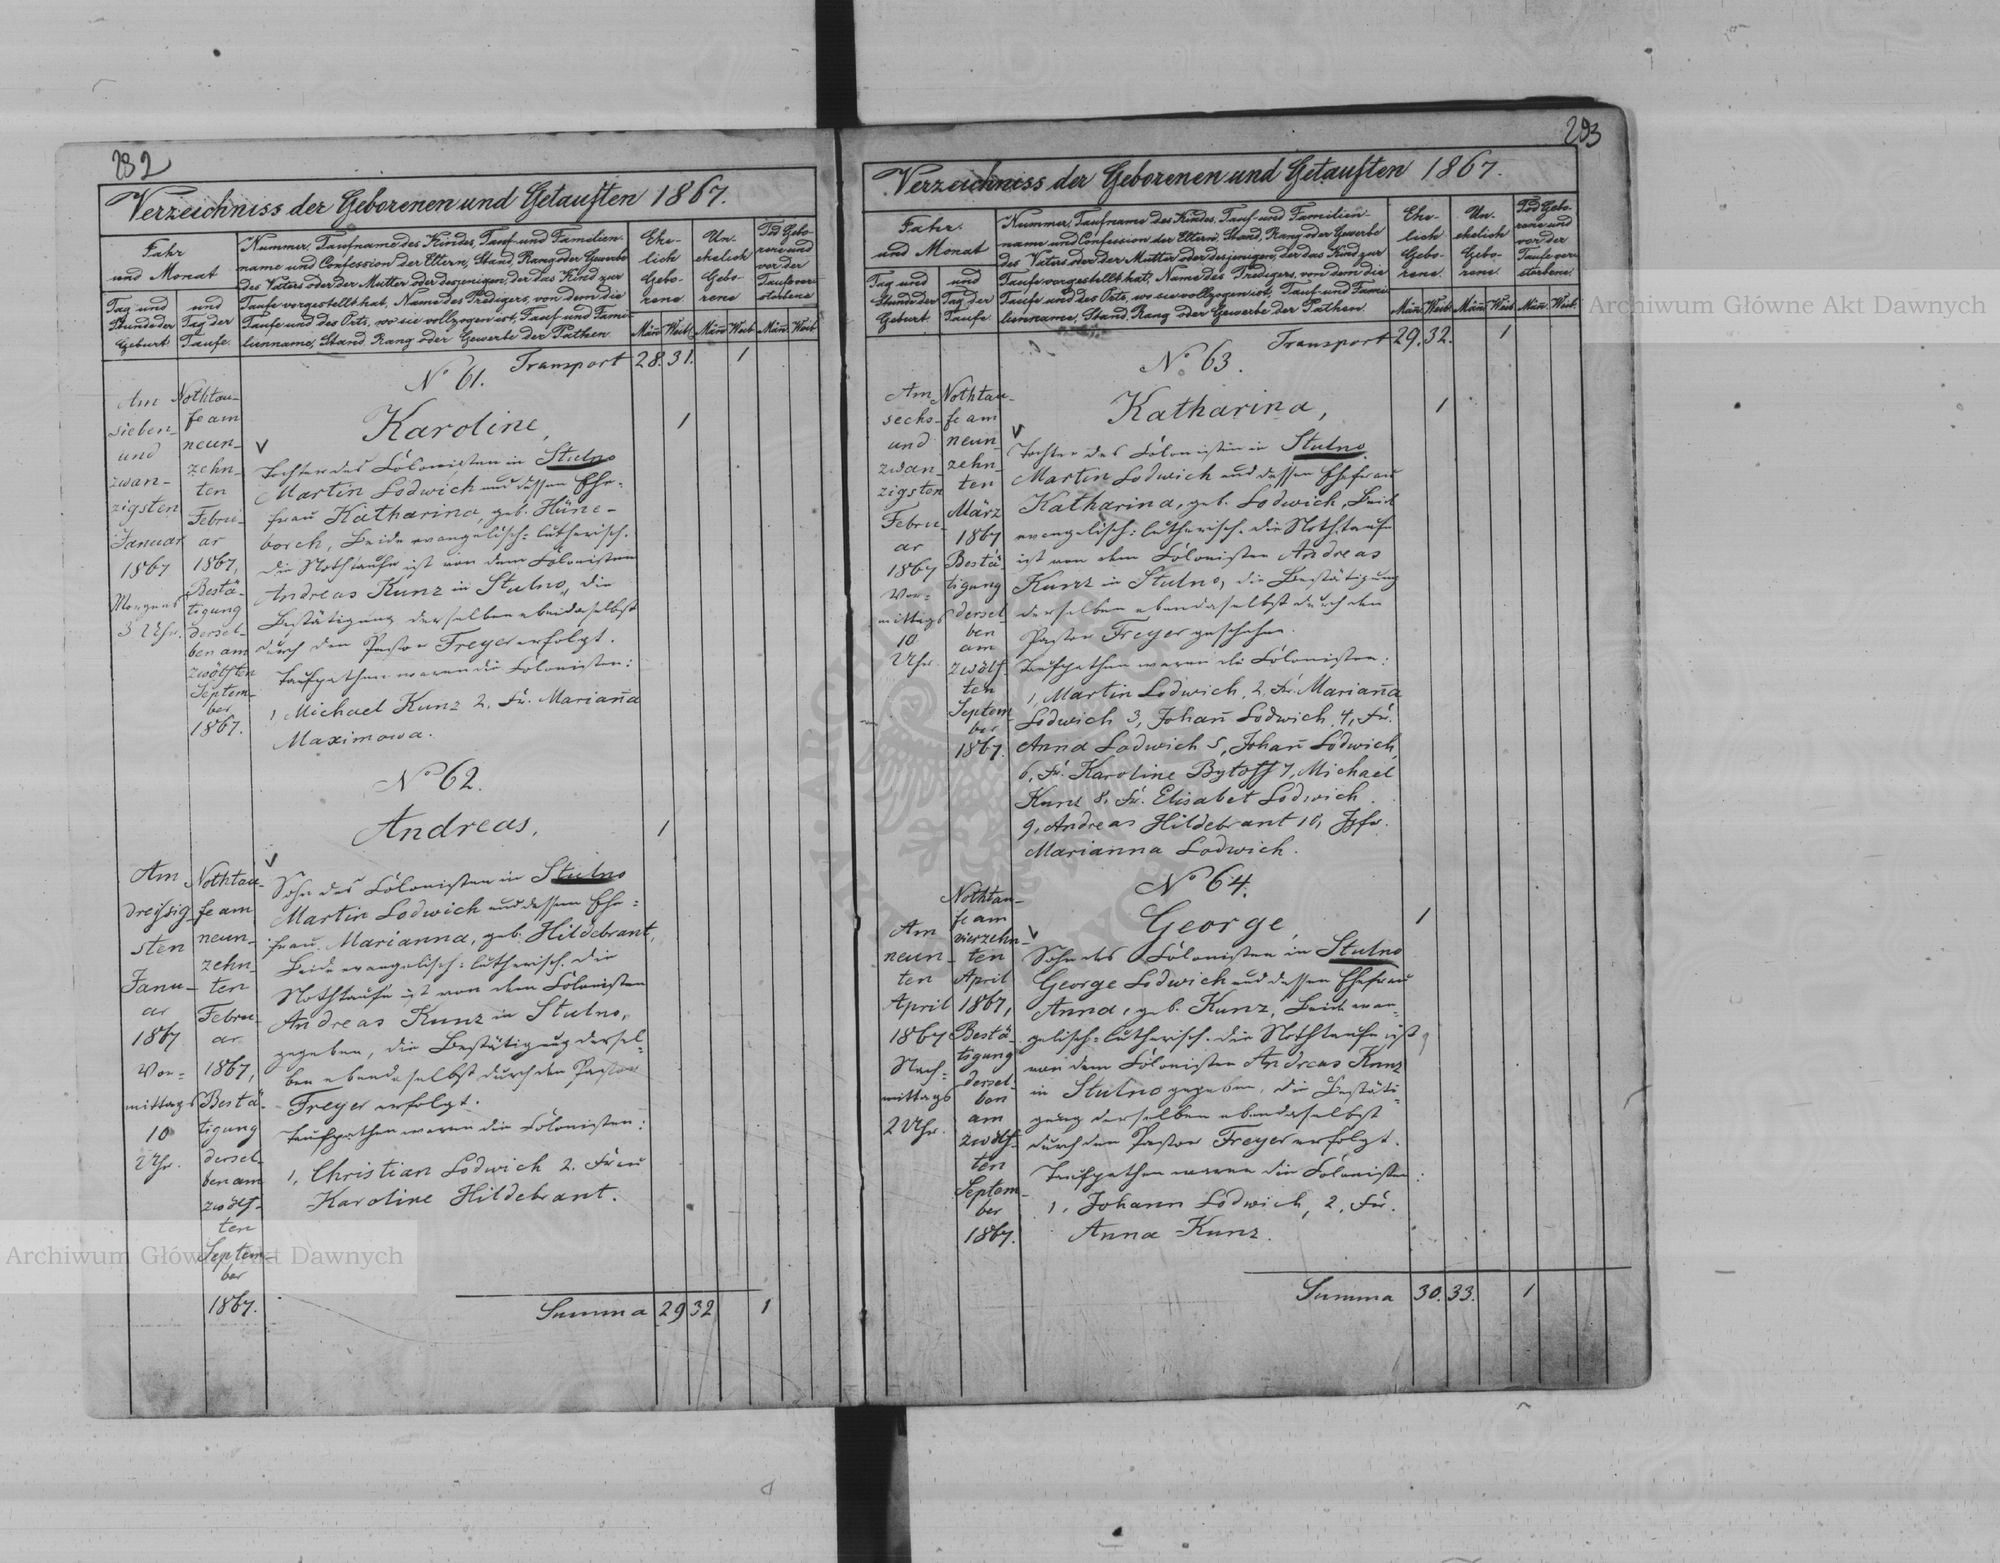 232
Verzeichniss der Geborenen und Getauften 1867.
Jahr
und Monat
Tag und
Stunde der
Geburt
und
Tag der
Taufe.
Nummer, Taufname des Kindes, Tauf- und Familien-
name und Confession der Eltern, Stand, Rang oder Gewerbe
des Vaters oder der Mutter oder desjenigen, der das Kind zur
Taufe vorgestellt hat, Name des Predigers, von dem die
Taufe und des Orts, wo sie vollzogen ist, Tauf und Fami-
lienname, Stand, Rang oder Gewerbe der Pathen.
Ehe-
lich
Gebo-
rene
Un-
ehelich
Gebo-
rene
Tod Gebo-
rene und
vor der
Taufe ver-
storbene
Män̄ Weib. Män̄ Weib Män̄ Weib
Transport 28. 31. 1
No 61.
Am
sieben-
und
zwan-
zigsten
Januar
1867
Morgens
3 Uhr.
Nothtau-
fe am
neun-
zehn-
ten
Febru-
ar
1867,
Bestä-
tigung
dersel-
ben am
zwölften
Septem-
ber
1867.
Karoline, 1
Tochter des Colonisten in Stulno
Martin Lodwich und dessen Ehe-
frau Katharina, geb. Hüne-
borch, Beide evangelisch-lutherisch.
Die Nothtaufe ist von dem Colonisten
Andreas Kunz in Stulno, die
Bestätigung derselben ebendaselbst
durch den Pastor Freyer erfolgt.
Taufpathen waren die Colonisten:
1, Michael Kunz 2. Fr. Marian̄a
Maximowa.
No 62.
Andreas, 1
Am
dreissig-
sten
Janu-
ar
1867
Vor-
mittags
10
Uhr.
Nothtau-
fe am
neun-
zehn-
ten
Febru-
ar
1867,
Bestä-
tigung
dersel-
ben am
zwölf-
ten
Septem-
ber
1867.
Sohn des Colonisten in Stulno
Martin Lodwich und dessen Ehe-
frau Marianna, geb. Hildebrant,
Beide evangelisch-lutherisch. Die
Nothtaufe ist von dem Colonisten
Andreas Kunz in Stulno,
gegeben, die Bestätigung dersel-
ben ebendaselbst durch den Pastor
Freyer erfolgt.
Taufpathen waren die Colonisten:
1, Christian Lodwich 2. Frau
Karoline Hildebrant.
Summa 29 32 1
293
Verzeichniss der Geborenen und Getauften 1867.
Jahr
und Monat
Tag und
Stunde der
Geburt
und
Tag der
Taufe
Nummer, Taufname des Kindes, Tauf- und Familien-
name und Confession der Eltern, Stand, Rang oder Gewerbe
des Vaters oder der Mutter oder desjenigen, der das Kind zur
Taufe vorgestellt hat, Name des Predigers, von dem die
Taufe und des Orts, wo sie vollzogen ist, Tauf und Fami-
lienname, Stand, Rang oder Gewerbe der Pathen.
Ehe-
lich
Gebo-
rene.
Un-
ehelich
Gebo-
rene.
Tod Gebo-
rene und
vor der
Taufe ver-
storbene.
Män̄ Weib. Män̄ Weib Män̄ Weib
Transport 29. 32. 1
No 63.
Am
sechs-
und
zwan-
zigsten
Febru-
ar
1867
Vor-
mittags
10
Uhr.
Nothtau-
fe am
neun-
zehn-
ten
März
1867
Bestä-
tigung
dersel-
ben
am
zwölf-
ten
Septem-
ber
1867.
Katharina, 1
Tochter des Colonisten in Stulno
Martin Lodwich und dessen Ehefrau
Katharina, geb. Lodwich, Beide
evangelisch-lutherisch. Die Nothtaufe
ist von dem Colonisten Andreas
Kunz in Stulno, die Bestätigung
derselben ebendaselbst durch den
Pastor Freyer geschehen.
Taufpathen waren die Colonisten:
1, Martin Lodwich, 2, Fr. Marian̄a
Lodwich 3, Johan̄ Lodwich 4, Fr.
Anna Lodwich 5, Johan̄ Lodwich,
6, Fr. Karoline Bytoff 7, Michael
Kunz 8, Fr. Elisabet Lodwich.
9, Andreas Hildebrant 10, Jgfr.
Marianna Lodwich.
No 64.
Am
neun-
ten
April
1867
Nach-
mittags
2 Uhr.
Nothtau-
fe am
vierzehn-
ten
April
1867,
Bestä-
tigung
dersel-
ben
am
zwölf-
ten
Septem-
ber
1867.
George, 1
Sohn des Colonisten in Stulno
George Lodwich und dessen Ehefrau
Anna, geb. Kunz, Beide evan-
gelisch-lutherisch. Die Nothtaufe ist
von dem Colonisten Andreas Kunz
in Stulno gegeben, die Bestäti-
gung derselben ebendaselbst
durch den Pastor Freyer erfolgt.
Taufpathen waren die Colonisten:
1, Johann Lodwich, 2, Fr.
Anna Kunz.
Summa 30. 33. 1
Archiwum Główne Akt Dawnych
Archiwum Główne Akt Dawnych